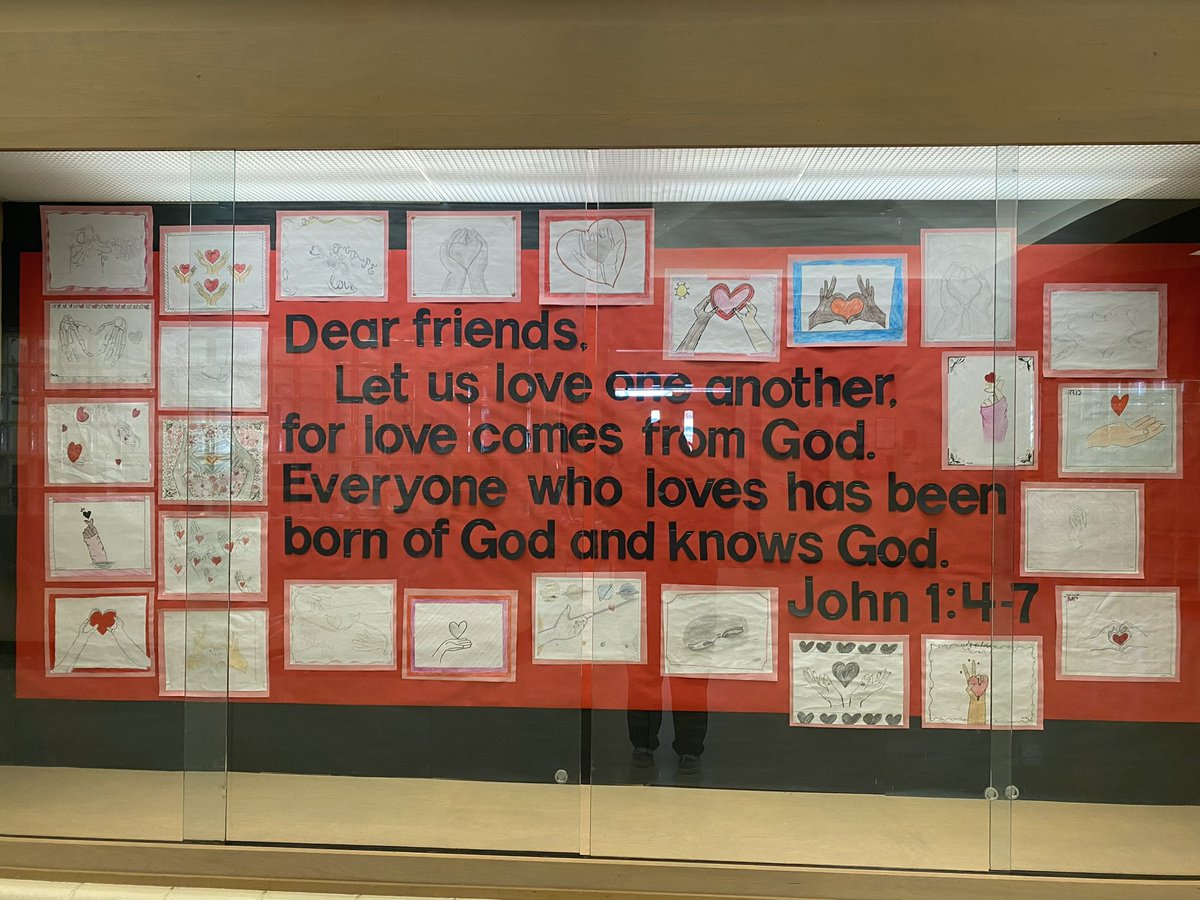 Dear friends,
Let us love one another,
for love comes from God.
Everyone who loves has been
born of God and knows God.
John 1:4-7
love